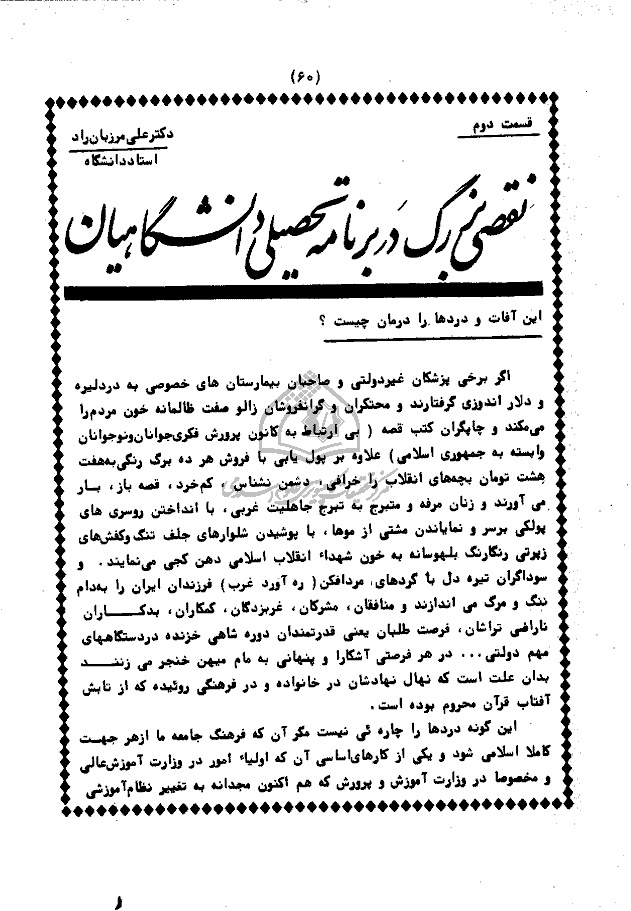 (۶۰)
قسمت دوم
دکتر علی مرزبان راد
استاد دانشگاه
نقصی بزرگ در برنامه تحصیلی دانشگاهیان
این آفات و دردها را درمان چیست ؟
اگر برخی پزشکان غیردولتی و صاحبان بیمارستان های خصوصی به دردلیره
و دلار اندوزی گرفتارند و محتکران و گرانفروشان زالو صفت ظالمانه خون مردم‌را
می‌مکند و چاپگران کتب قصه ( بی ارتباط به کانون پرورش فکری‌جوانان‌ونوجوانان
وابسته به جمهوری اسلامی) علاوه بر پول یابی با فروش هر ده برگ رنگی‌به‌هفت
هشت تومان بچه‌های انقلاب را خرافی، دشمن نشناس ، کم‌خرد، قصه باز، بـار
می آورند و زنان مرفه و متبرج به تبرج جاهلیت غربی ، با انداختن روسری های
پولکی برسر و نمایاندن مشتی از موها، با پوشیدن شلوارهای جلف تنگ‌وکفش‌های
زپرتی رنگارنگ بلهوسانه به خون شهداء انقلاب اسلامی دهن کجی می‌نمایند . و
سوداگران تیره دل با گردهای، مردافکن( ره آورد غرب) فرزندان ایران را به‌دام
ننگ و مرگ می اندازند و منافقان، مشرکان، غربزدگان، کمکاران، بدکـــاران
ناراضی تراشان، فرصت طلبان یعنی قدرتمندان دوره شاهی خزنده دردستگاههای
مهم دولتی... در هر فرصتی آشکارا و پنهانی به مام میهن خنجر می زننـــد
بدان علت است که نهال نهادشان در خانواده و در فرهنگی روئیده که از تابش
آفتاب قرآن محروم بوده است .
این گونه دردها را چاره ئی نیست مگر آن که فرهنگ جامعه ما ازهر جـهـت
کاملا اسلامی شود و یکی از کارهای‌اساسی آن که اولیاء امور در وزارت آموزش‌عالی
و مخصوصا در وزارت آموزش و پرورش که هم اکنون مجدانه به تغییر نظام‌آموزشی